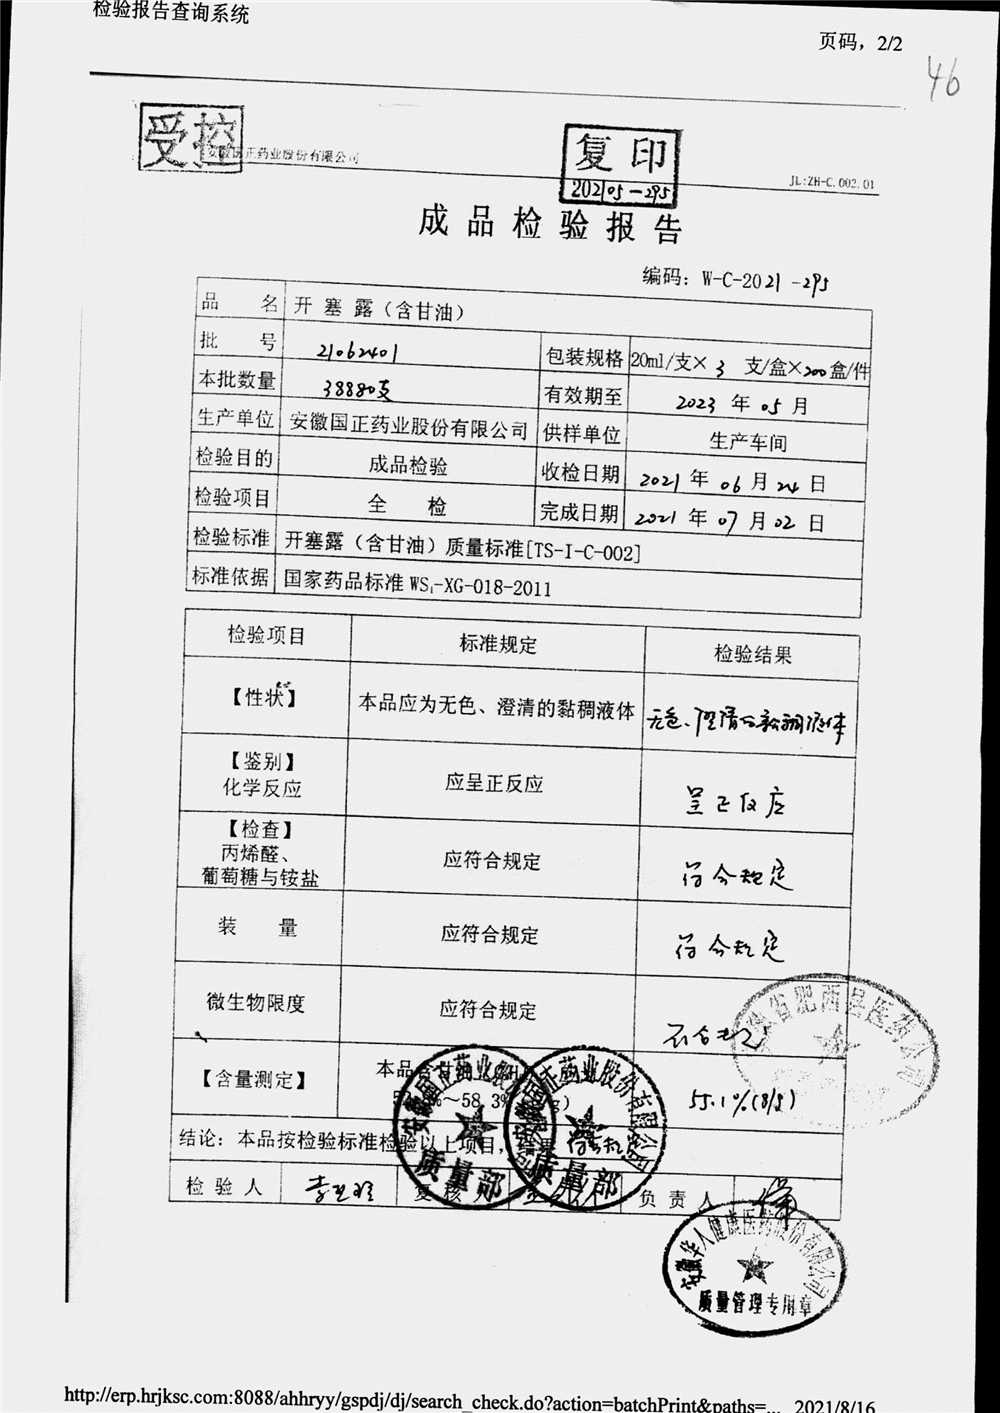 检验报告查询系统
页码，2/2
46
受控
安徽国正药业股份有限公司
复印
202105-295
JL:ZH-C.002.01
成品检验报告
编码：W-C-2021-295
品名 开塞露（含甘油）
批号 21062401 包装规格 20ml/支×3支/盒×200盒/件
本批数量 38880支 有效期至 2023年05月
生产单位 安徽国正药业股份有限公司 供样单位 生产车间
检验目的 成品检验 收检日期 2021年06月24日
检验项目 全检 完成日期 2021年07月02日
检验标准 开塞露（含甘油）质量标准[TS-I-C-002]
标准依据 国家药品标准 WS₁-XG-018-2011
检验项目 标准规定 检验结果
【性状】 本品应为无色、澄清的黏稠液体 无色、澄清的黏稠液体
【鉴别】
化学反应 应呈正反应 呈正反应
【检查】
丙烯醛、
葡萄糖与铵盐 应符合规定 符合规定
装量 应符合规定 符合规定
微生物限度 应符合规定 符合规定
【含量测定】 本品含甘油 ～58.3% 55.1%(g/g)
结论：本品按检验标准检验以上项目，结果符合规定
检验人 复核 负责人
安徽国正药业股份有限公司
质量部
安徽国正药业股份有限公司
质量部
安徽省肥西县医药公司
安徽华人健康医药股份有限公司
质量管理专用章
http://erp.hrjksc.com:8088/ahhryy/gspdj/dj/search_check.do?action=batchPrint&paths=... 2021/8/16